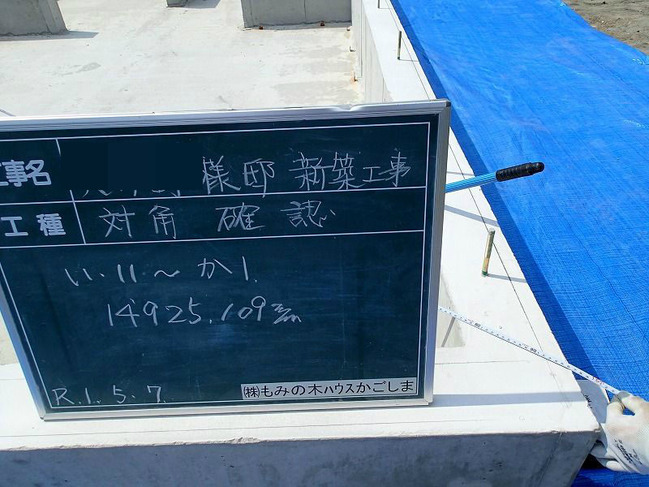 工事名 様邸 新築工事
工種 対角 確認
い.11～か1.
14925.109㎜
R.1.5.7
㈱もみの木ハウスかごしま